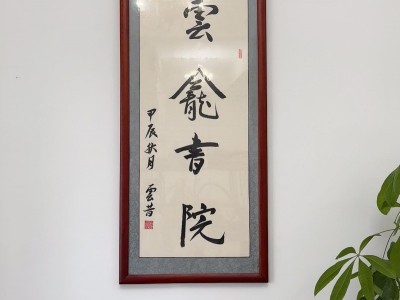 雲龕書院
甲辰秋月 雲昔